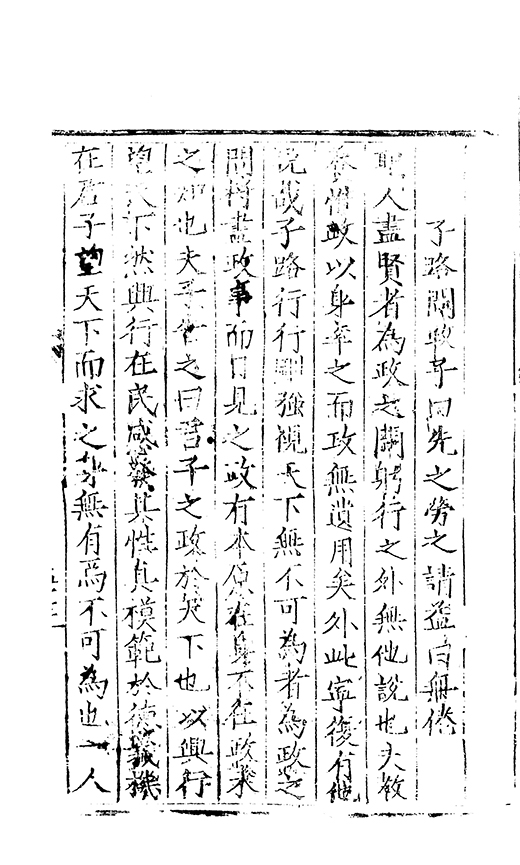 子路問政子曰先之勞之請益曰無倦
聖人盡賢者為政之關躬行之外無他說也夫敎
養惟政以身率之而政無遺用矣外此寧復有他
說哉子路行行剛強視天下無不可為者為政之
問將盡政事而日見之政有本原在身不在政求
之切也夫子告之曰君子之政於天下也以興行
望天下然興行在民感發其性其模範於德義機
在君子望天下而求之身無有焉不可為也一人